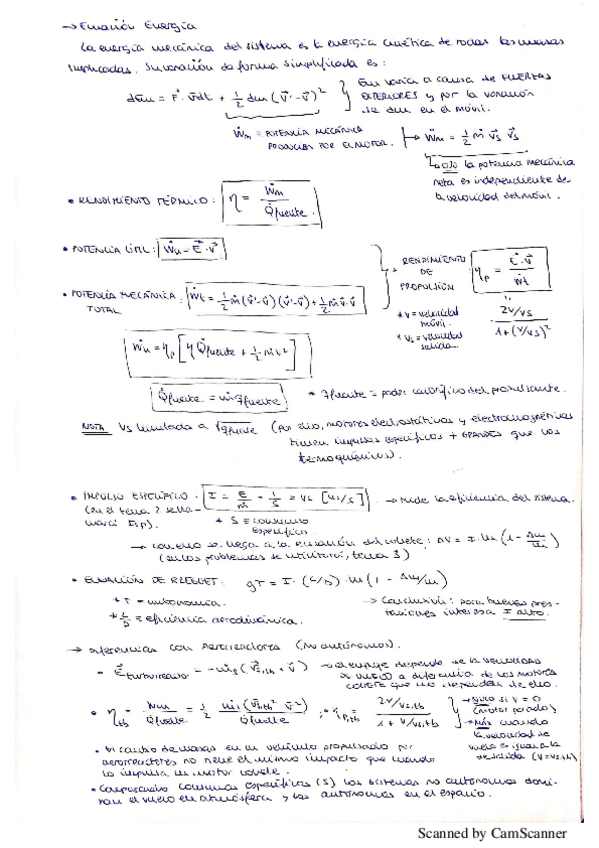 → Ecuación Energía
La energía mecánica del sistema es la energía cinética de todas las masas
implicadas. Su variación de forma simplificada es:
dEm = F·v̄dt + 1/2 dm (v̄'-v̄)² } Em varía a causa de FUERZAS
EXTERIORES y por la variación
de dm en el móvil.
Ẇm = POTENCIA MECÁNICA
PRODUCIDA POR EL MOTOR.
→ Ẇm = 1/2 ṁ v̄s v̄s
→ OJO la potencia mecánica
neta es independiente de
la velocidad del móvil.
• RENDIMIENTO TÉRMICO: η = Ẇm / Q̇fuente
• POTENCIA ÚTIL: Ẇu = Ē·v̄
• POTENCIA MECÁNICA TOTAL: Ẇt = 1/2 ṁ(v̄'-v̄)(v̄'-v̄) + 1/2 ṁ v̄·v̄
RENDIMIENTO
DE
PROPULSIÓN
ηp = Ē·v̄ / Ẇt
" 2v/vs / 1+(v/vs)²
* v = velocidad
móvil.
* vs = velocidad
salida.
Ẇu = ηp [η Q̇fuente + 1/2 ṁv²]
Q̇fuente = ṁ qfuente
* qfuente = poder calorífico del propulsante.
NOTA vs limitada a √qfuente (por ello, motores electrostáticos y electromagnéticos
tienen impulsos específicos + GRANDES que los
termoquímicos).
• IMPULSO ESPECÍFICO: I = E/ṁ = 1/S = vs [m/s] → mide la eficiencia del sistema.
(en el tema 2 se llamará Isp).
* S = consumo
Específico
→ con ello se llega a la ecuación del cohete: ΔV = I·ln(1 - Δm/m)
(en los problemas se utilizará, tema 3)
• ECUACIÓN DE BREGUET: gT = I·(L/D)·ln(1 - Δm/m)
* T = autonomía.
* L/D = eficiencia aerodinámica.
→ Conclusión: para buenas prestaciones
interesa I alto.
→ Diferencias con aerorreactores (no autónomos).
• Ēturborreactor = -ṁs(v̄s,tb + v̄) → el empuje depende de la velocidad
de vuelo a diferencia de los motores
cohete que no dependen de ello.
• ηtb = Ẇm / Q̇fuente = 1/2 ṁs(v̄s,tb² v̄²) / Q̇fuente ; • ηp,tb = 2v/vs,tb / 1 + v/vs,tb
→ Nulo si v = 0
(motor parado)
→ Máx cuando
la velocidad de
vuelo es igual a la
de salida (v=vs,tb)
• El cambio de masas en un vehículo propulsado por
aerorreactores no tiene el mismo impacto que cuando
lo impulsa un motor cohete.
• Comparando consumos específicos (S) los sistemas no autónomos dominan
el vuelo en atmósfera y los autónomos en el espacio.
Scanned by CamScanner